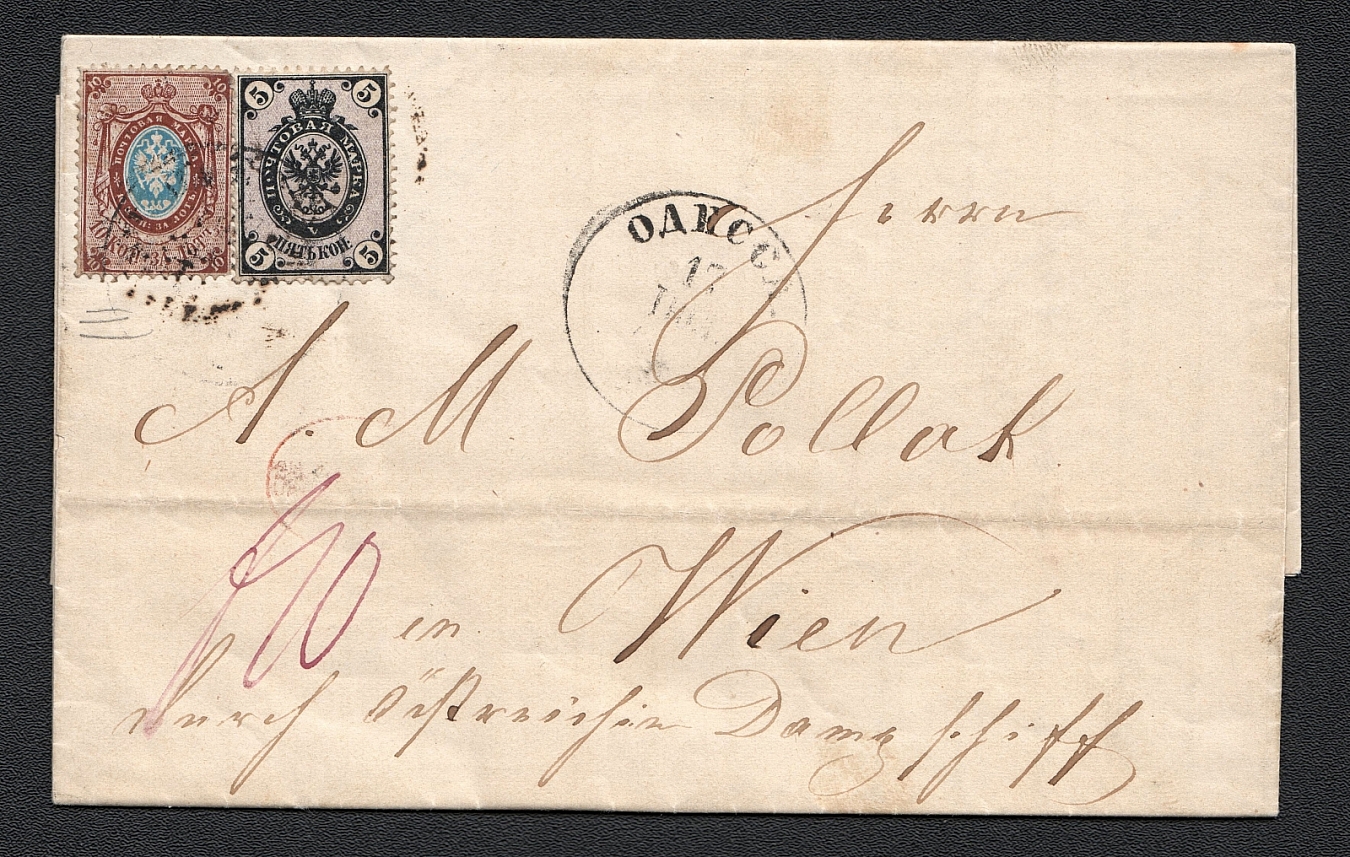 10 10
ПОЧТОВАЯ МАРКА
10 КОП: ЗА ЛОТЪ
10 10
5 5
ПОЧТОВАЯ МАРКА
ПЯТЬ КОП:
5 5
ОДЕСС
Herrn
A. M Pollak
10
in Wien
durch östreichisn Dampfschiff